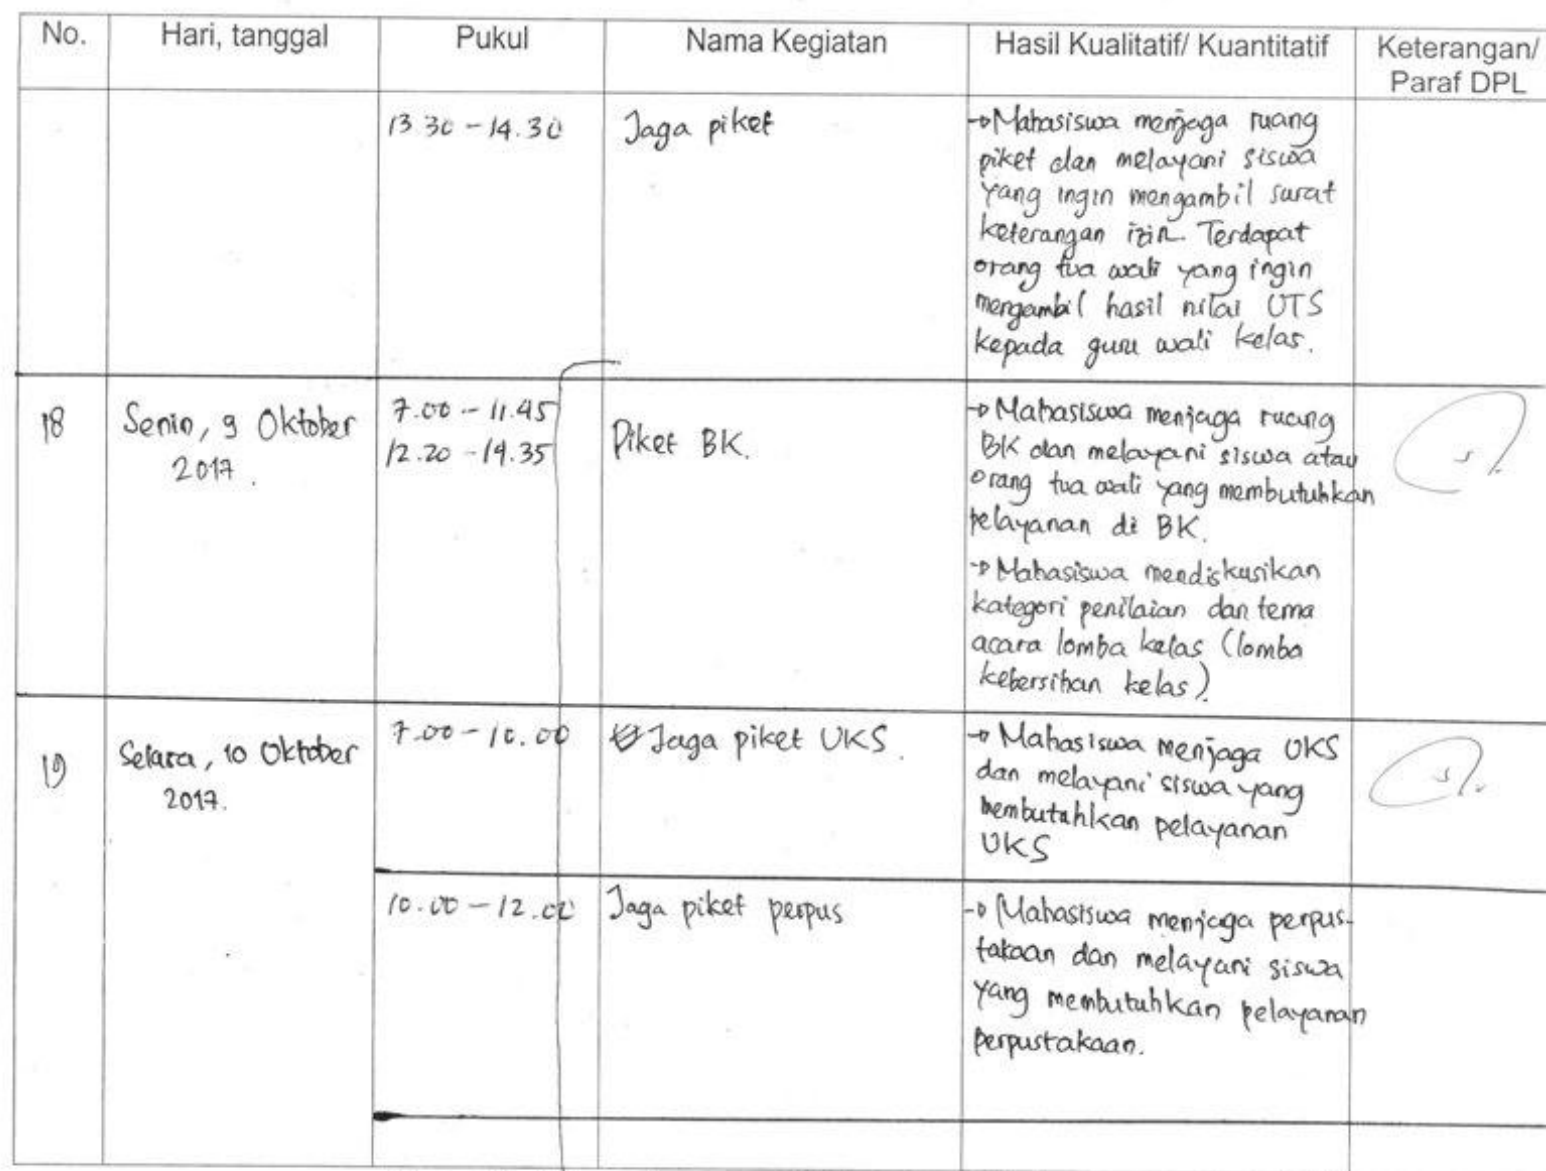 No. Hari, tanggal Pukul Nama Kegiatan Hasil Kualitatif/ Kuantitatif Keterangan/
Paraf DPL
13.30 - 14.30 Jaga piket → Mahasiswa menjaga ruang
piket dan melayani siswa
yang ingin mengambil surat
keterangan izin. Terdapat
orang tua wali yang ingin
mengambil hasil nilai UTS
kepada guru wali kelas.
18 Senin, 9 Oktober 7.00 - 11.45 Piket BK. → Mahasiswa menjaga ruang
2017. 12.20 - 14.35 BK dan melayani siswa atau
orang tua wali yang membutuhkan
pelayanan di BK.
→ Mahasiswa mendiskusikan
kategori penilaian dan tema
acara lomba kelas (lomba
kebersihan kelas)
19 Selasa, 10 Oktober 7.00 - 10.00 Jaga piket UKS. → Mahasiswa menjaga UKS
2017. dan melayani siswa yang
membutuhkan pelayanan
UKS
10.00 - 12.00 Jaga piket perpus → Mahasiswa menjaga perpus-
takaan dan melayani siswa
yang membutuhkan pelayanan
perpustakaan.